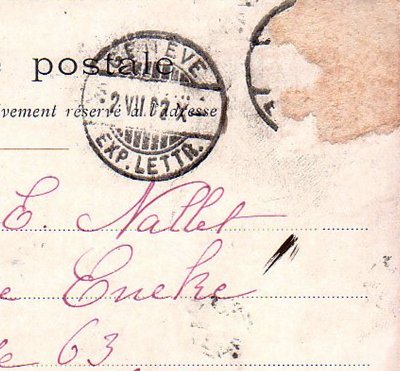 GENÈVE
e postale
2.VII.02.X
ivement réservé à l'adresse
EXP. LETTR.
E. Nallet
e Encke
e 63